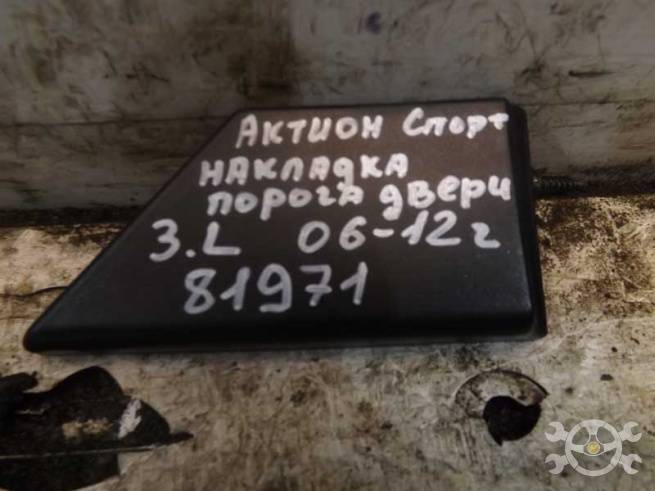 АКТИОН Спорт
НАКЛАДКА
порога двери
З.L 06-12г
81971